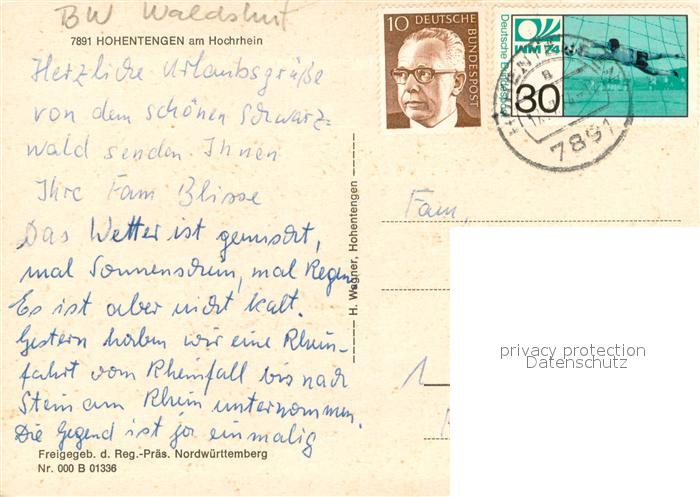 BW Waldshut
7891 HOHENTENGEN am Hochrhein
Herzliche Urlaubsgrüße
von dem schönen Schwarz-
wald senden Ihnen
Ihre Fam Blisse
Das Wetter ist gemischt,
mal Sonnenschein, mal Regen.
Es ist aber nicht kalt.
Gestern haben wir eine Rhein-
fahrt vom Rheinfall bis nach
Stein am Rhein unternommen.
Die Gegend ist ja einmalig
Freigegeb. d. Reg.-Präs. Nordwürttemberg
Nr. 000 B 01336
H. Wagner, Hohentengen
10 DEUTSCHE
BUNDESPOST
Deutsche Bundespost
WM 74
30
7891
Fam.
privacy protection
Datenschutz